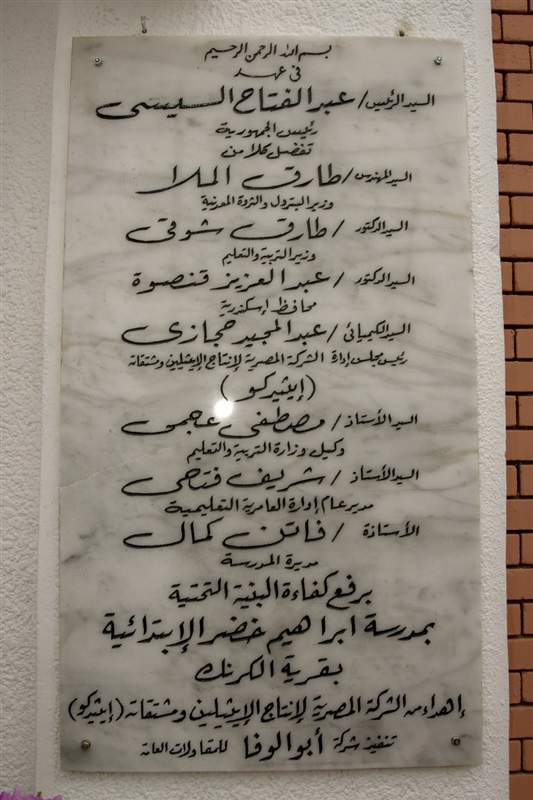 بسم الله الرحمن الرحيم
فى عهد
السيد الرئيس / عبد الفتاح السيسى
رئيس الجمهورية
تفضل كلا من
السيد المهندس / طارق الملا
وزير البترول والثروة المعدنية
السيد الدكتور / طارق شوقى
وزير التربية والتعليم
السيد الدكتور / عبد العزيز قنصوة
محافظ إسكندرية
السيد الكيميائى / عبد المجيد حجازى
رئيس مجلس إدارة الشركة المصرية لإنتاج الإيثيلين ومشتقاته
( إيثيدكو )
السيد الأستاذ / مصطفى عجمى
وكيل وزارة التربية والتعليم
السيد الأستاذ / شريف فتحى
مدير عام إدارة العامرية التعليمية
الأستاذة / فاتن كمال
مديرة المدرسة
برفع كفاءة البنية التحتية
بمدرسة ابراهيم خضر الإبتدائية
بقرية الكرنك
إهداء من الشركة المصرية لإنتاج الإيثيلين ومشتقاته (إيثيدكو)
تنفيذ شركة أبو الوفا للمقاولات العامة